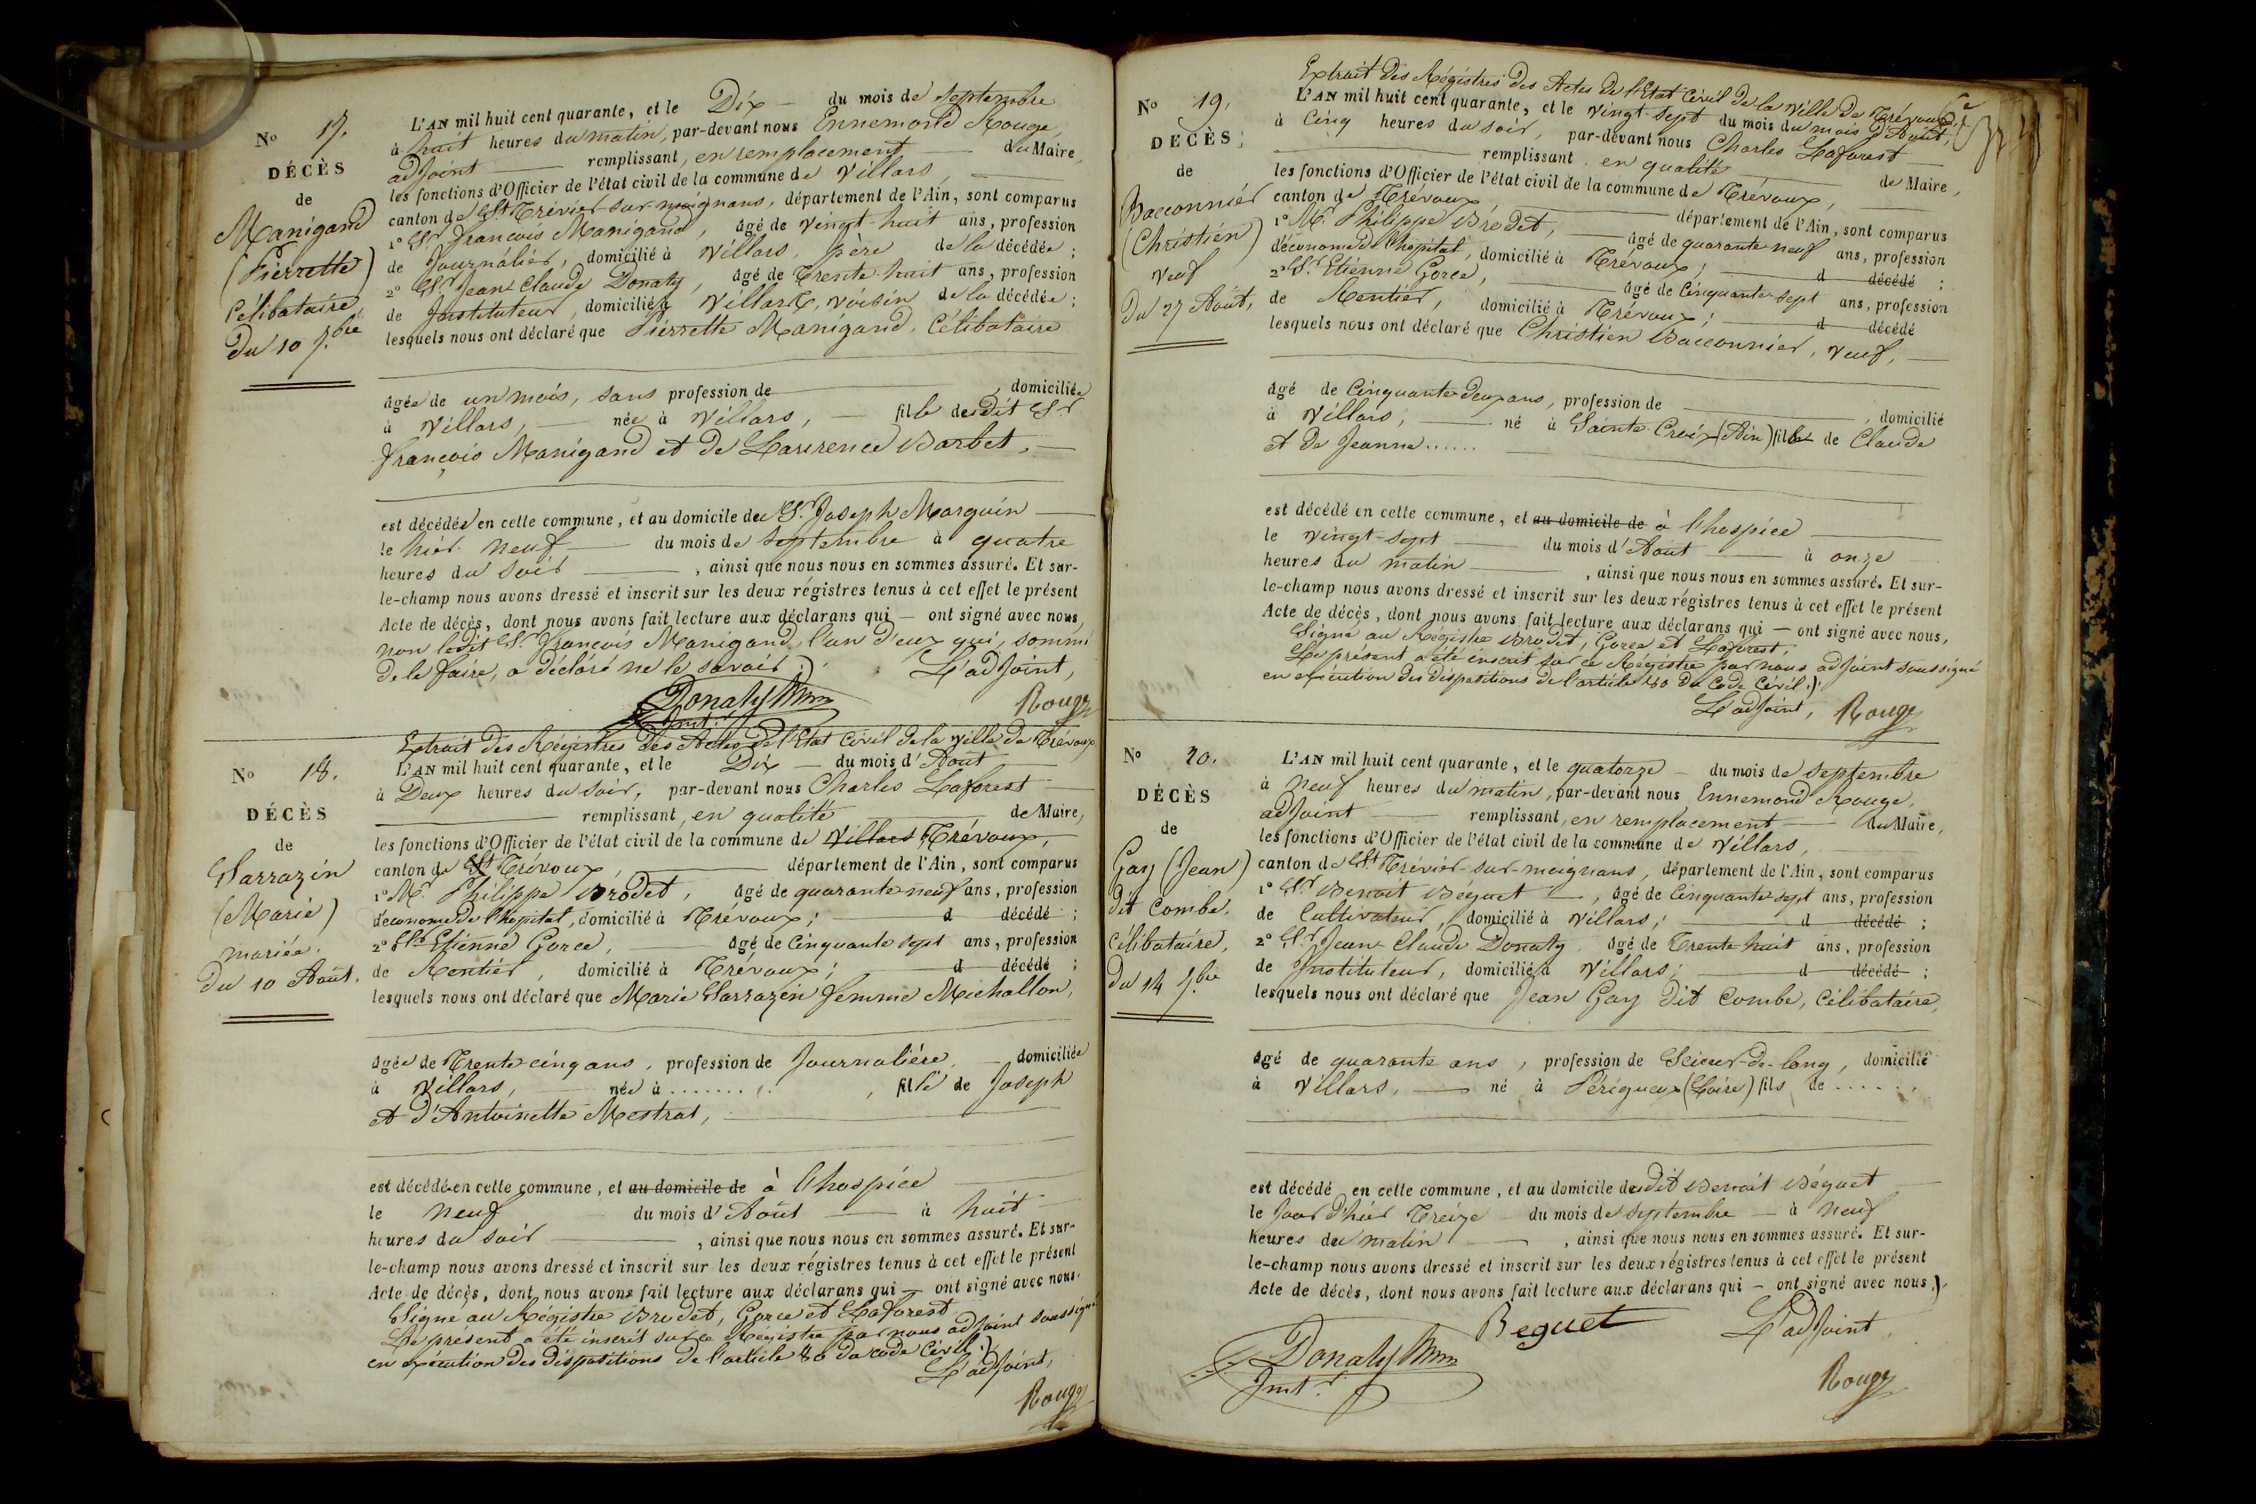 N° 17.
DÉCÈS
de
Manigand
(Pierrette)
Célibataire
Du 10 7.bre
L'AN mil huit cent quarante, et le Dix — du mois de septembre
à huit heures du matin, par-devant nous Ennemond Rouge,
adjoint — remplissant, en remplacement — du Maire,
les fonctions d'Officier de l'état civil de la commune de Villars,
canton de St Trévier-sur-moignans, département de l'Ain, sont comparus
1° Sr françois Manigand, âgé de vingt-huit ans, profession
de Journalier, domicilié à Villars, père de la décédée ;
2° Sr Jean Claude Donaty, âgé de Trente-huit ans, profession
de Instituteur, domicilié à Villars, voisin de la décédée ;
lesquels nous ont déclaré que Pierrette Manigand, célibataire
âgée de un mois, sans profession de , domiciliée
à Villars, — née à Villars, — fille dudit Sr
françois Manigand et de Laurence Barbet,
est décédée en cette commune, et au domicile du Sr Joseph Marguin
le hier neuf — du mois de septembre à quatre
heures du soir , ainsi que nous nous en sommes assuré. Et sur-
le-champ nous avons dressé et inscrit sur les deux régistres tenus à cet effet le présent
Acte de décès, dont nous avons fait lecture aux déclarans qui — ont signé avec nous,
non ledit Sr françois Manigand, l'un d'eux qui, sommé
de le faire, a déclaré ne le savoir.
L'adjoint,
Donaty
Inst.r
Rouge
N° 18.
DÉCÈS
de
Sarrazin
(Marie)
mariée.
Du 10 Août.
Extrait des Régistres des Actes de l'Etat Civil de la ville de Trévoux
L'AN mil huit cent quarante, et le Dix — du mois d'Août
à Deux heures du soir, par-devant nous Charles Laforest
remplissant, en qualité de Maire,
les fonctions d'Officier de l'état civil de la commune de Villars Trévoux,
canton de St Trévoux, département de l'Ain, sont comparus
1° Mr. Philippe Brodet, âgé de quarante-neuf ans, profession
d'économe de l'hôpital, domicilié à Trévoux ; d décédé ;
2° Sr Etienne Gorce, âgé de Cinquante sept ans, profession
de Rentier, domicilié à Trévoux ; d décédé ;
lesquels nous ont déclaré que Marie Sarrazin femme Michallon,
âgée de Trente-cinq ans, profession de Journalière, domiciliée
à Villars, — née à ......., fille de Joseph
et d'Antoinette Mestrat,
est décédé en cette commune, et au domicile de à l'hospice
le neuf du mois d'Août — à huit
heures du soir , ainsi que nous nous en sommes assuré. Et sur-
le-champ nous avons dressé et inscrit sur les deux régistres tenus à cet effet le présent
Acte de décès, dont nous avons fait lecture aux déclarans qui — ont signé avec nous.
Signé au Régistre Brodet, Gorce et Laforest
Le présent a été inscrit sur ce Régistre par nous adjoint soussigné
en exécution des dispositions de l'article 80 du code civil.
L'adjoint,
Rouge
N° 19.
DÉCÈS
de
Bacconnier
(Christien)
veuf
Du 27 Août,
Extrait des Régistres des Actes de l'Etat Civil de la Ville de Trévoux
L'AN mil huit cent quarante, et le vingt-sept du mois du mois d'Août,
à Cinq heures du soir, par-devant nous Charles Laforest
remplissant, en qualité de Maire,
les fonctions d'Officier de l'état civil de la commune de Trévoux,
canton de Trévoux, département de l'Ain, sont comparus
1° Mr. Philippe Brodet, âgé de quarante neuf ans, profession
d'économe de l'hôpital, domicilié à Trévoux ; d décédé ;
2° Sr Etienne Gorce, âgé de Cinquante-sept ans, profession
de Rentier, domicilié à Trévoux ; d décédé
lesquels nous ont déclaré que Christien Bacconnier, veuf,
âgé de Cinquante deux ans, profession de , domicilié
à Villars, — né à Sainte Croix (Ain) fils de Claude
et de Jeanne......
est décédé en cette commune, et au domicile de à l'hospice
le vingt-sept — du mois d'Août — à onze
heures du matin , ainsi que nous nous en sommes assuré. Et sur-
le-champ nous avons dressé et inscrit sur les deux régistres tenus à cet effet le présent
Acte de décès, dont nous avons fait lecture aux déclarans qui — ont signé avec nous,
Signé au Régistre Brodet, Gorce et Laforest,
Le présent a été inscrit sur ce Régistre par nous adjoint soussigné
en exécution des dispositions de l'article 80 du Code Civil.
L'adjoint, Rouge
N° 20.
DÉCÈS
de
Gay (Jean)
dit Combe.
Célibataire,
Du 14 7.bre
L'AN mil huit cent quarante, et le quatorze — du mois de septembre
à neuf heures du matin, par-devant nous Ennemond Rouge,
adjoint — remplissant, en remplacement — du Maire,
les fonctions d'Officier de l'état civil de la commune de Villars,
canton de St Trévier-sur-moignans, département de l'Ain, sont comparus
1° Sr Benoit Béguet —, âgé de Cinquante-sept ans, profession
de Cultivateur, domicilié à Villars ; d décédé ;
2° Sr Jean Claude Donaty âgé de Trente huit ans, profession
de Instituteur, domicilié à Villars ; d décédé ;
lesquels nous ont déclaré que Jean Gay dit Combe, Célibataire,
âgé de quarante ans, profession de Scieur-de-long, domicilié
à Villars, — né à Périgueux (Loire) fils de ......
est décédé en cette commune, et au domicile dudit Benoit Béguet
le Jour d'hier Treize du mois de septembre — à neuf
heures du matin — , ainsi que nous nous en sommes assuré. Et sur-
le-champ nous avons dressé et inscrit sur les deux régistres tenus à cet effet le présent
Acte de décès, dont nous avons fait lecture aux déclarans qui — ont signé avec nous.
Beguet
L'adjoint,
Donaty
Inst.r
Rouge